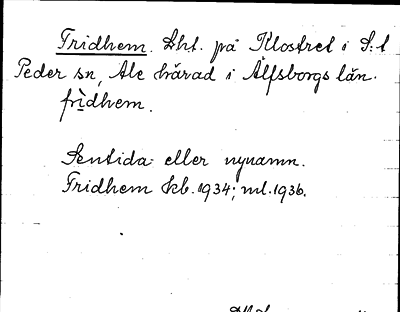 Fridhem. Lht. på Klostret i S:t
Peder sn, Ale härad i Älfsborgs län.
frìdhem.
Sentida eller nynamn.
Fridhem kb. 1934; ml. 1936.